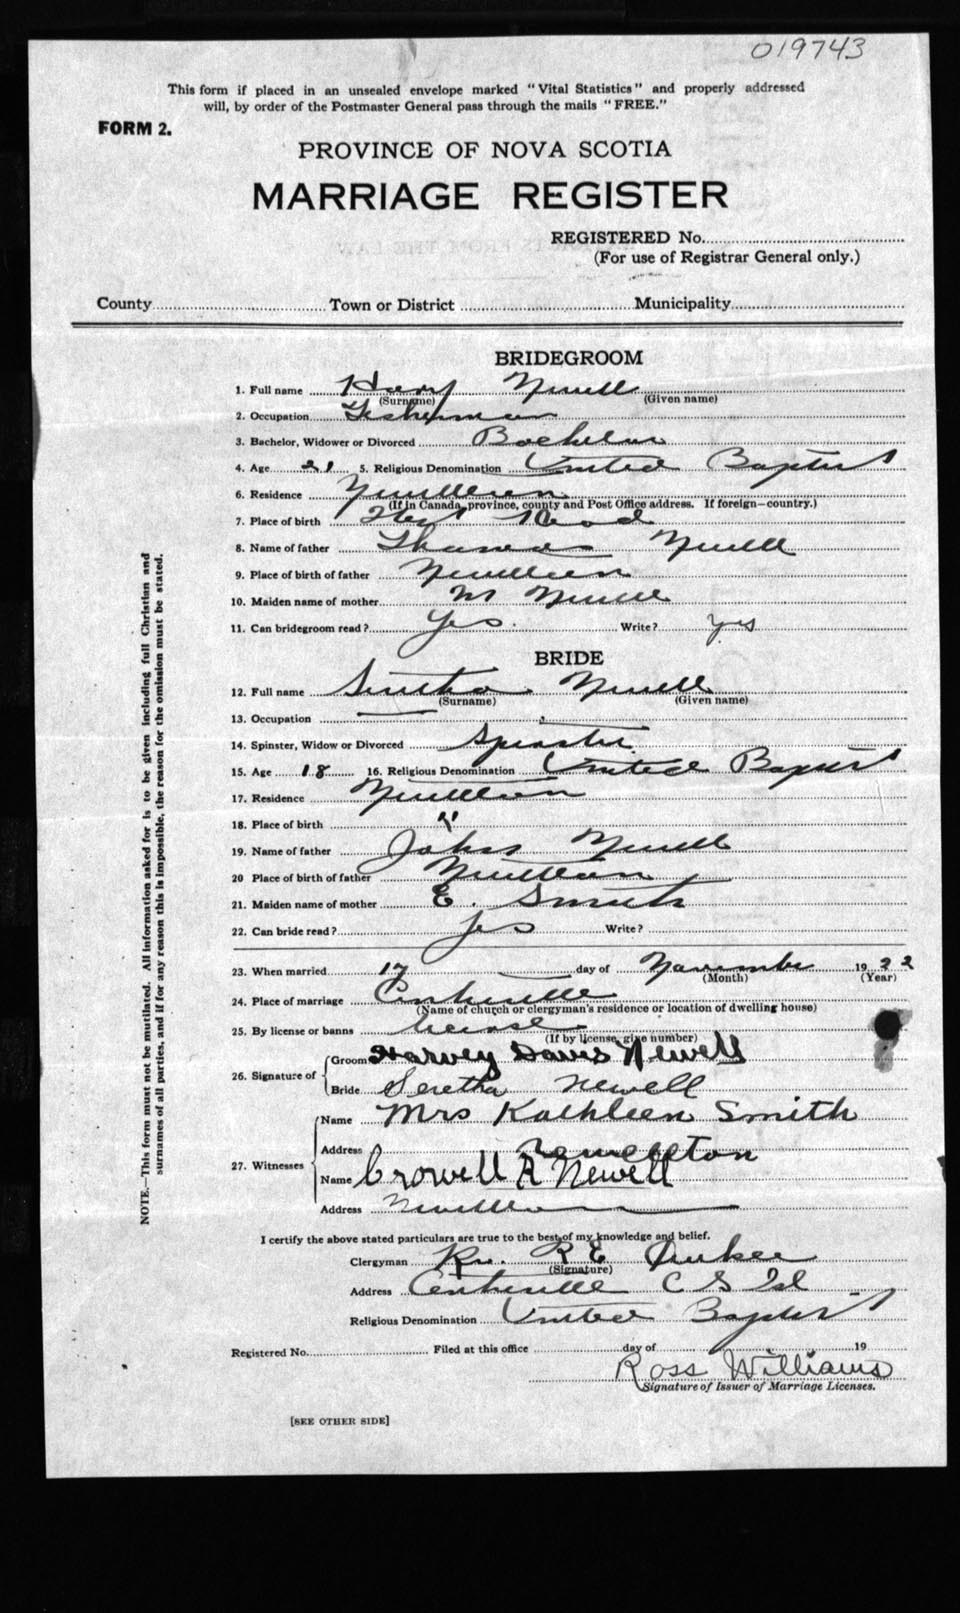 019743
This form if placed in an unsealed envelope marked "Vital Statistics" and properly addressed
will, by order of the Postmaster General pass through the mails "FREE."
FORM 2.
PROVINCE OF NOVA SCOTIA
MARRIAGE REGISTER
REGISTERED No.
(For use of Registrar General only.)
County Town or District Municipality
BRIDEGROOM
1. Full name Newell
(Surname) (Given name)
2. Occupation Fisherman
3. Bachelor, Widower or Divorced Bachelor
4. Age 21 5. Religious Denomination United Baptist
6. Residence Newellton
(If in Canada, province, county and Post Office address. If foreign—country.)
7. Place of birth Head
8. Name of father Thomas Newell
9. Place of birth of father Newellton
10. Maiden name of mother M Newell
11. Can bridegroom read? Yes. Write? yes
BRIDE
12. Full name Newell
(Surname) (Given name)
13. Occupation
14. Spinster, Widow or Divorced Spinster
15. Age 18 16. Religious Denomination United Baptist
17. Residence Newellton
18. Place of birth "
19. Name of father John Newell
20 Place of birth of father Newellton
21. Maiden name of mother E. Smith
22. Can bride read? Yes Write?
23. When married 17 day of November 19
(Month) (Year)
24. Place of marriage Centreville
(Name of church or clergyman's residence or location of dwelling house)
25. By license or banns license
(If by license, give number)
26. Signature of
Groom Harvey Davis Newell
Bride Seretha Newell
27. Witnesses
Name Mrs Kathleen Smith
Address Newellton
Name Crowell A Newell
Address Newellton
I certify the above stated particulars are true to the best of my knowledge and belief.
Clergyman Rev. R E
(Signature)
Address Centreville C S Isl
Religious Denomination United Baptist
Registered No. Filed at this office day of 19
Ross Williams
Signature of Issuer of Marriage Licenses.
[SEE OTHER SIDE]
NOTE.—This form must not be mutilated. All information asked for is to be given including full Christian and
surnames of all parties, and if for any reason this is impossible, the reason for the omission must be stated.